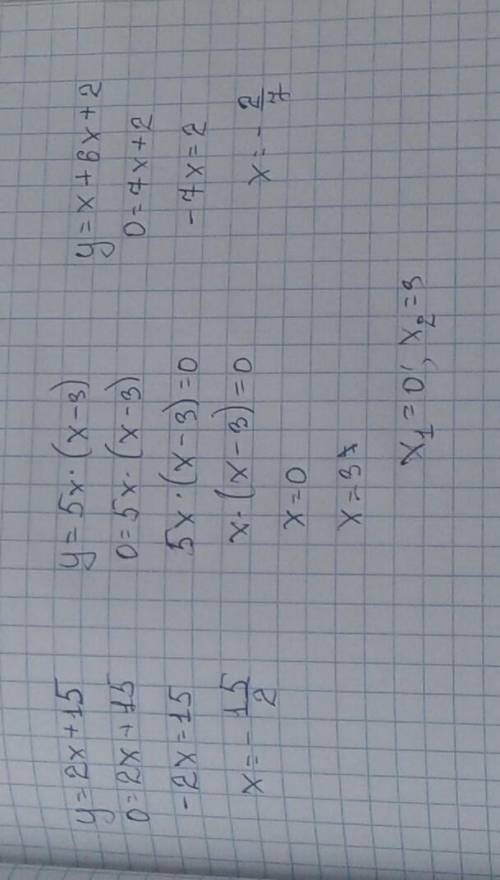 y=2x+15
0=2x+15
-2x=15
x=-15/2
y=5x·(x-3)
0=5x·(x-3)
5x·(x-3)=0
x·(x-3)=0
x=0
x=3
x₁=0; x₂=3
y=x+6x+2
0=7x+2
-7x=2
x=-2/7